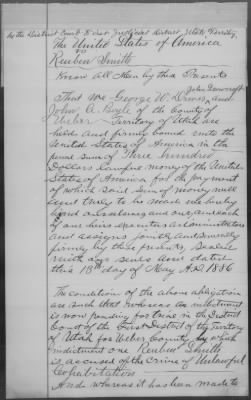 In the District Court First Judicial District Utah Territory
The United States of America
vs
Reuben Smith
Know All Men by this Presents
John Bancroft
That We George W. and
John A. Boyle of the County of
Weber Territory of Utah are
held and firmly bound unto the
United States of America in the
penal sum of Three hundred
Dollars lawful money of the United
States of America, for the payment
of which said sum of money well
and truly to be made we hereby
bind ourselves and our and each
of our heirs executors administrators
and assigns jointly and severally
firmly by these presents, sealed
with our seals and dated
this 18th day of May A.D. 1886
The condition of the above obligation
are such that Whereas an indictment
is now pending for trial in the District
Court of the First District of the Territory
of Utah for Weber County, by which
indictment one Reuben Smith
is accused of the crime of Unlawful
Cohabitation
And whereas it has been made to